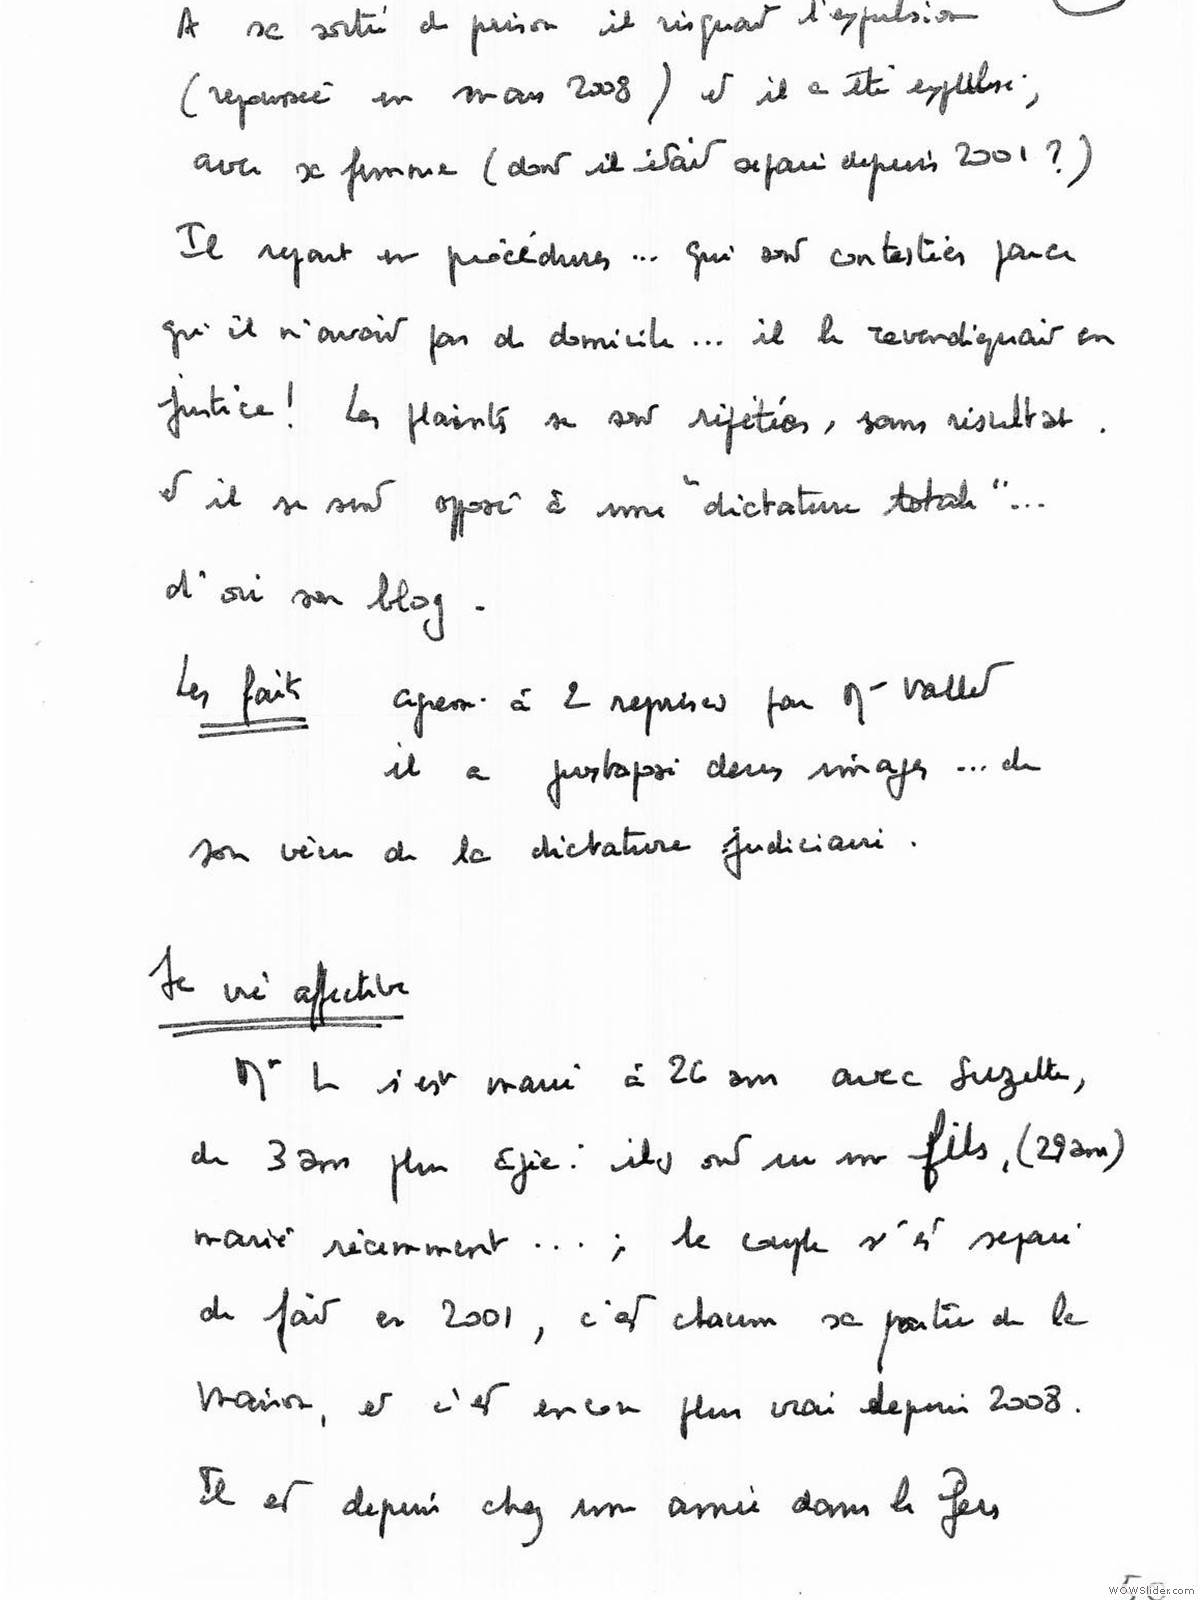 A sa sortie de prison il risquait l'expulsion
(repoussée en mars 2008) et il a été expulsé,
avec sa femme (dont il était séparé depuis 2001 ?)
Il repart en procédures ... qui sont contestées parce
qu'il n'avait pas de domicile ... il le revendiquait en
justice ! Les plaintes se sont répétées, sans résultat.
et il se sent opposé à une "dictature totale" ...
d'où son blog.
Les faits agressé à 2 reprises par Mr Vallet
il a juxtaposé deux images ... de
son vécu de la dictature judiciaire.
Sa vie affective
Mr L s'est marié à 26 ans avec Suzette,
de 3 ans plus âgée : ils ont eu un fils, (29 ans)
marié récemment ... ; le couple s'est séparé
de fait en 2001, c'est chacun sa partie de la
maison, et c'est encore plus vrai depuis 2008.
Il est depuis chez une amie dans le Gers
WOWSlider.com